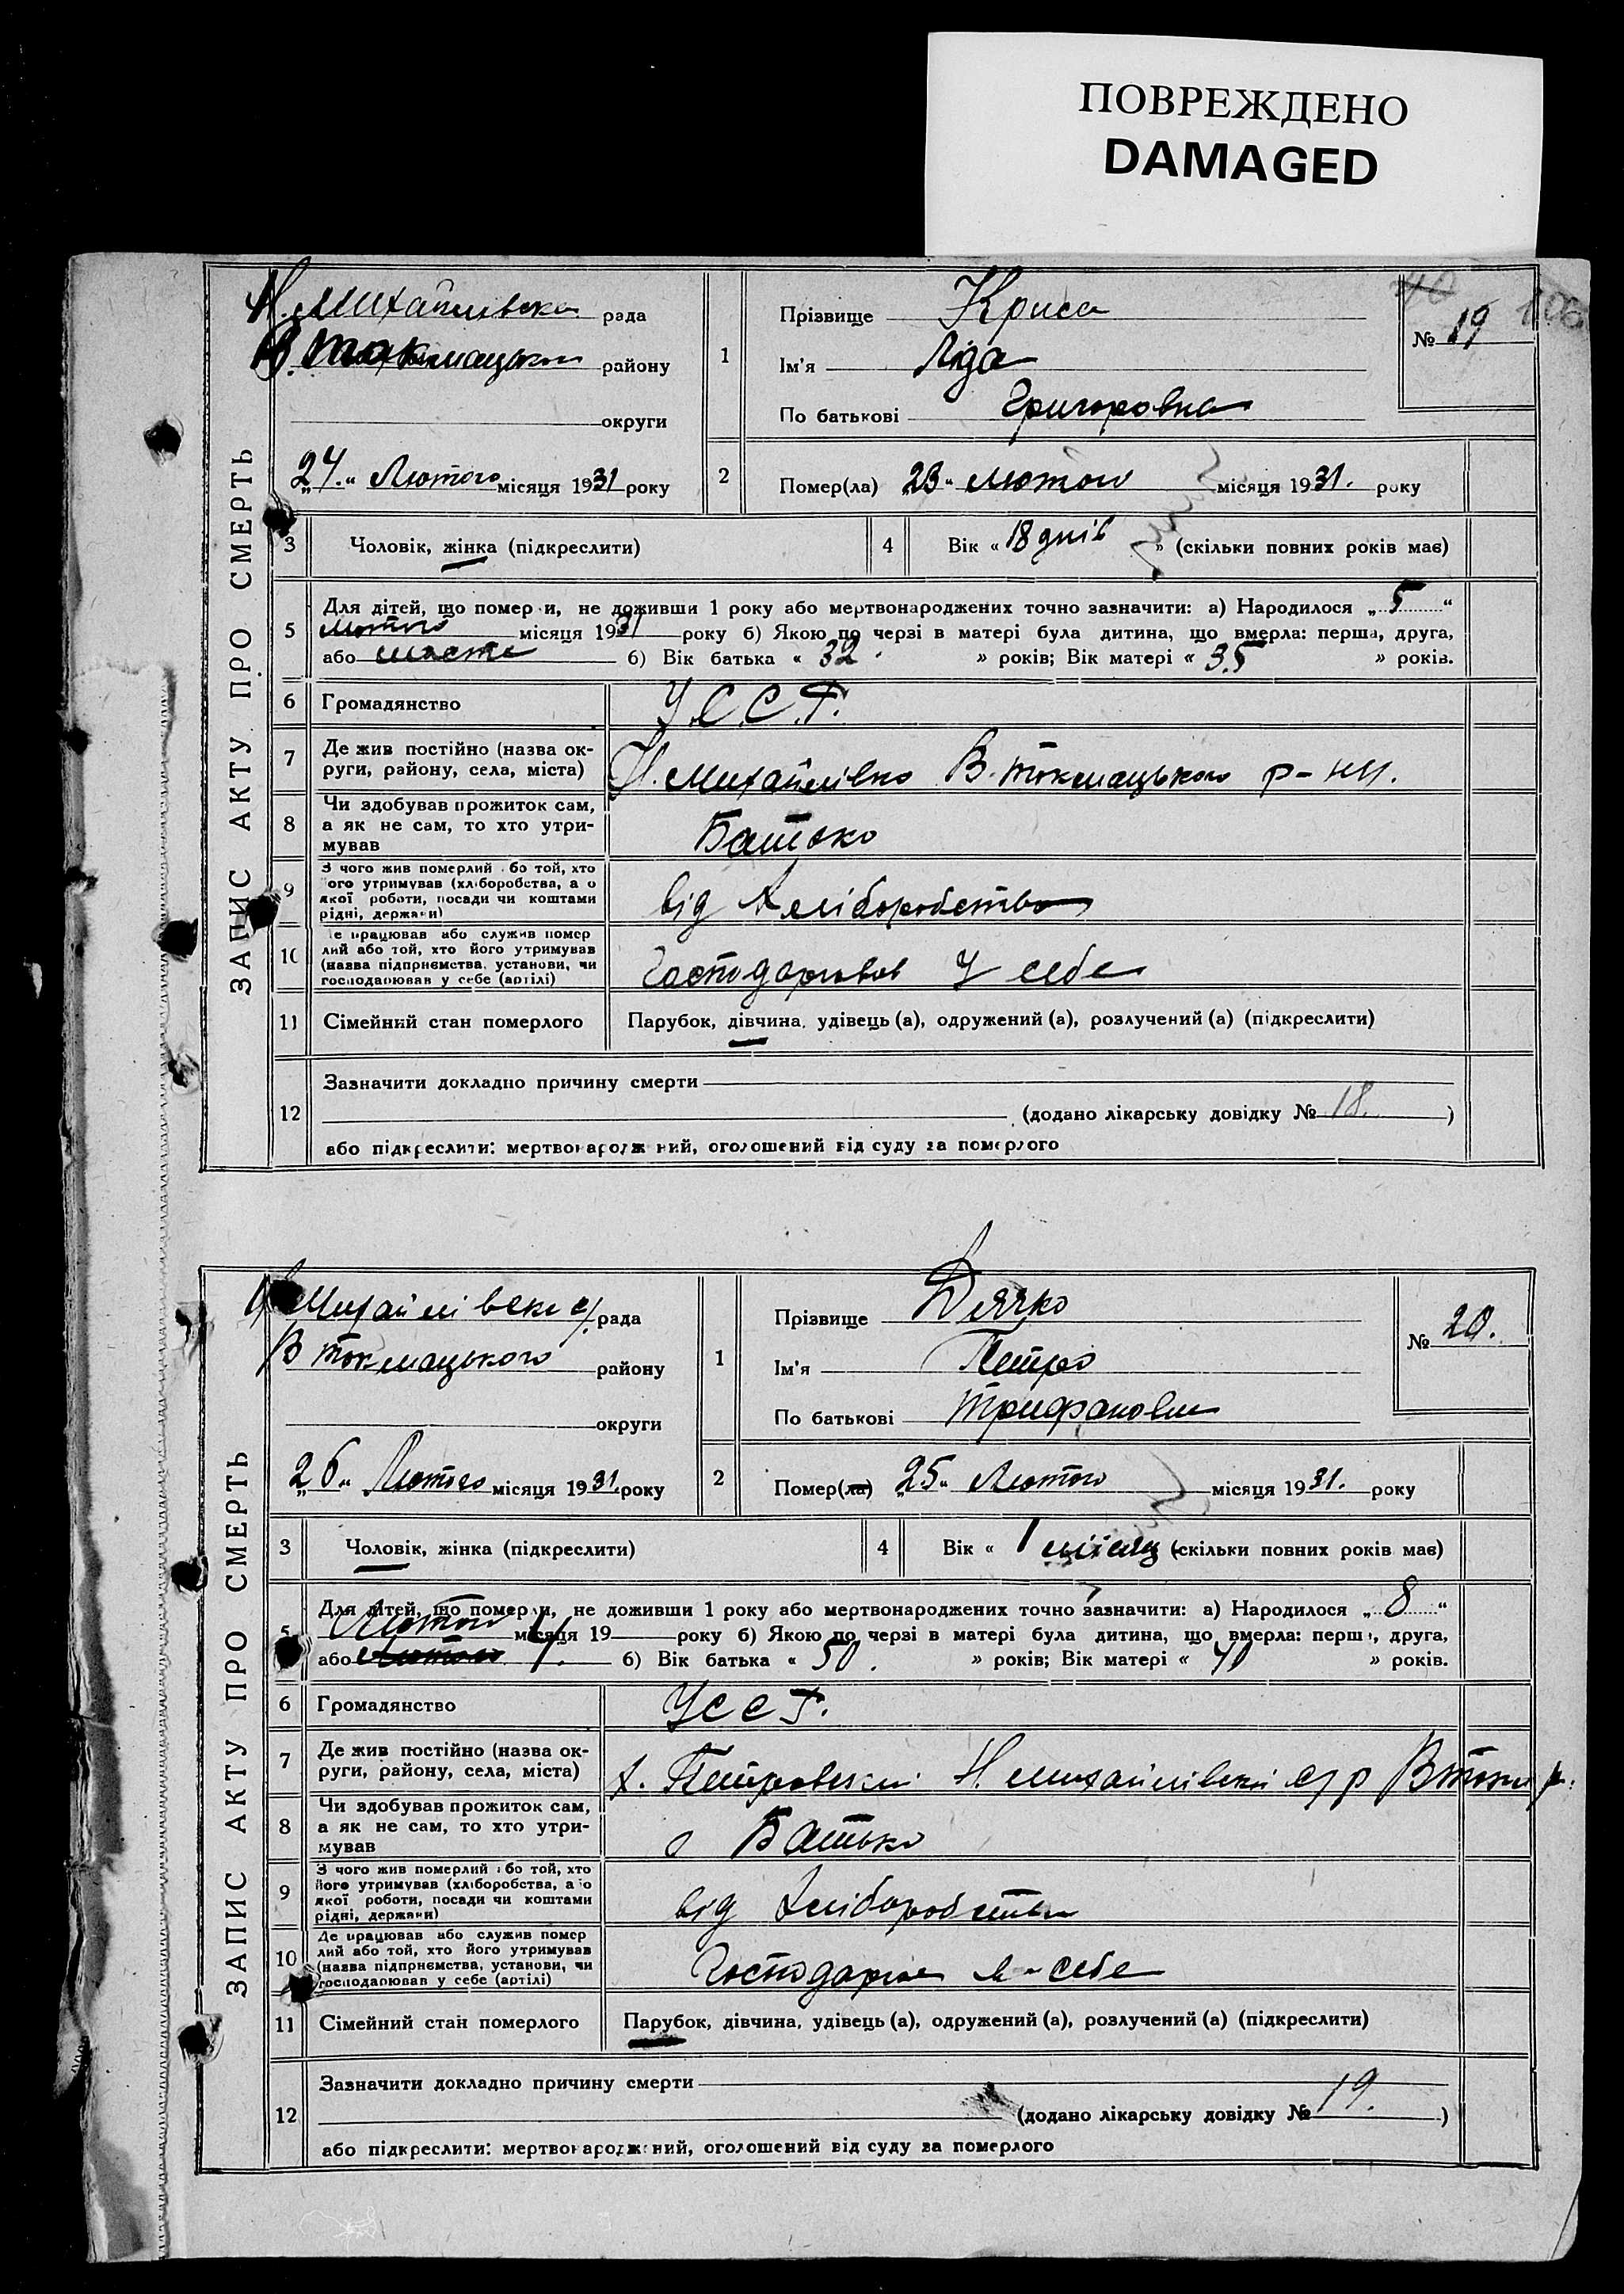 ПОВРЕЖДЕНО
DAMAGED
ЗАПИС АКТУ ПРО СМЕРТЬ
Н. Михайлівська рада
В. Токмацького району
округи
"24." Лютого місяця 1931 року
1
Прізвище Криса
Ім'я Ліда
По батькові Григоровна
№ 19
40
2
Помер(ла) "23" лютого місяця 1931. року
3
Чоловік, жінка (підкреслити)
4
Вік « 18 днів » (скільки повних років має)
5
Для дітей, що померли, не доживши 1 року або мертвонароджених точно зазначити: а) Народилося „ 5 “
лютого місяця 1931 року б) Якою по черзі в матері була дитина, що вмерла: перша, друга,
або шоста б) Вік батька « 32 » років; Вік матері « 35 » років.
6
Громадянство
У.С.С.Р.
7
Де жив постійно (назва ок-
руги, району, села, міста)
Н. Михайлівка В. Токмацького р-ну.
8
Чи здобував прожиток сам,
а як не сам, то хто утри-
мував
Батько
9
З чого жив померлий або той, хто
його утримував (хліборобства, або
якої роботи, посади чи коштами
рідні, держави)
від хліборобства
10
Де працював або служив помер
лий або той, хто його утримував
(назва підприємства, установи, чи
господарював у себе (артілі)
Господарював у себе
11
Сімейний стан померлого
Парубок, дівчина, удівець (а), одружений (а), розлучений (а) (підкреслити)
12
Зазначити докладно причину смерти
(додано лікарську довідку № 18. )
або підкреслити: мертвонароджений, оголошений від суду за померлого
ЗАПИС АКТУ ПРО СМЕРТЬ
Михайлівська с/рада
В Токмацького району
округи
"26" Лютого місяця 1931 року
1
Прізвище Дячко
Ім'я Петро
По батькові Трифанович
№ 20.
2
Помер(ла) "25" Лютого місяця 1931. року
3
Чоловік, жінка (підкреслити)
4
Вік « 1 місяц (скільки повних років має)
5
Для дітей, що померли, не доживши 1 року або мертвонароджених точно зазначити: а) Народилося „ 8 “
Лютого місяця 19 року б) Якою по черзі в матері була дитина, що вмерла: перша, друга,
або б) Вік батька « 50. » років; Вік матері « 40 » років.
6
Громадянство
УССР.
7
Де жив постійно (назва ок-
руги, району, села, міста)
х. Петровский Н. Михайлівської с/р В Токм р.
8
Чи здобував прожиток сам,
а як не сам, то хто утри-
мував
Батько
9
З чого жив померлий або той, хто
його утримував (хліборобства, або
якої роботи, посади чи коштами
рідні, держави)
від хліборобства
10
Де працював або служив помер
лий або той, хто його утримував
(назва підприємства, установи, чи
господарював у себе (артілі)
себе
11
Сімейний стан померлого
Парубок, дівчина, удівець (а), одружений (а), розлучений (а) (підкреслити)
12
Зазначити докладно причину смерти
(додано лікарську довідку № 19. )
або підкреслити: мертвонароджений, оголошений від суду за померлого